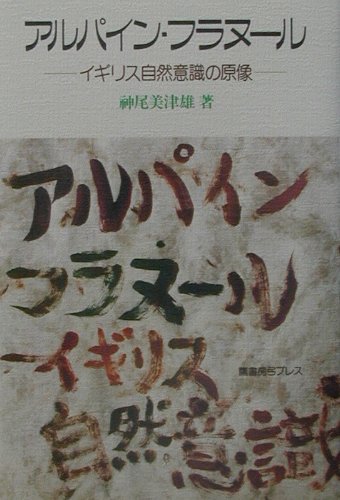 アルパイン・フラヌール
―イギリス自然意識の原像―
神尾美津雄 著
アルパイン
フラヌール
イギリス
鷹書房弓プレス
自然意識